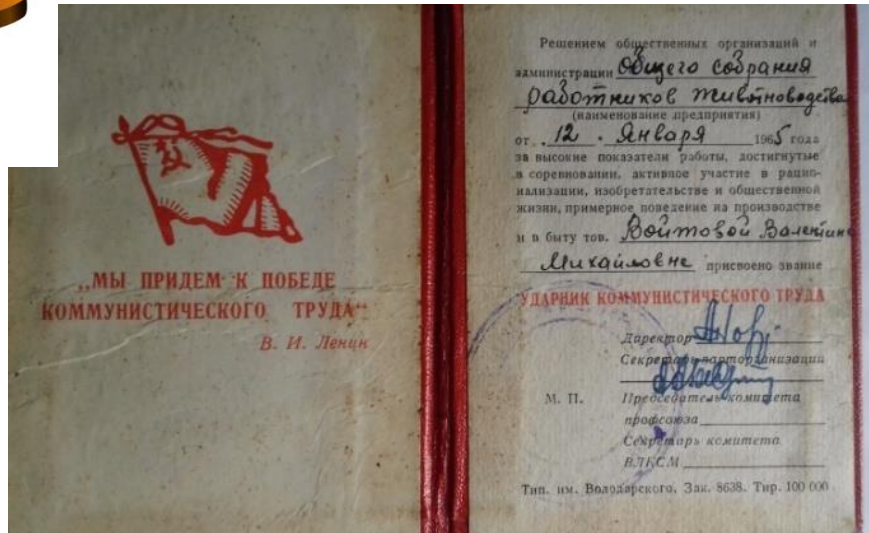 „МЫ ПРИДЕМ К ПОБЕДЕ
КОММУНИСТИЧЕСКОГО ТРУДА“
В. И. Ленин
Решением общественных организаций и
администрации Общего собрания
работников животноводства
(наименование предприятия)
от „12 . Января 1965 года
за высокие показатели работы, достигнутые
в соревновании, активное участие в рацио-
нализации, изобретательстве и общественной
жизни, примерное поведение на производстве
и в быту тов. Войтовой Валентине
Михайловне присвоено звание
УДАРНИК КОММУНИСТИЧЕСКОГО ТРУДА
Директор
Секретарь парторганизации
М. П. Председатель комитета
профсоюза
Секретарь комитета
ВЛКСМ
Тип. им. Володарского, Зак. 8638. Тир. 100 000